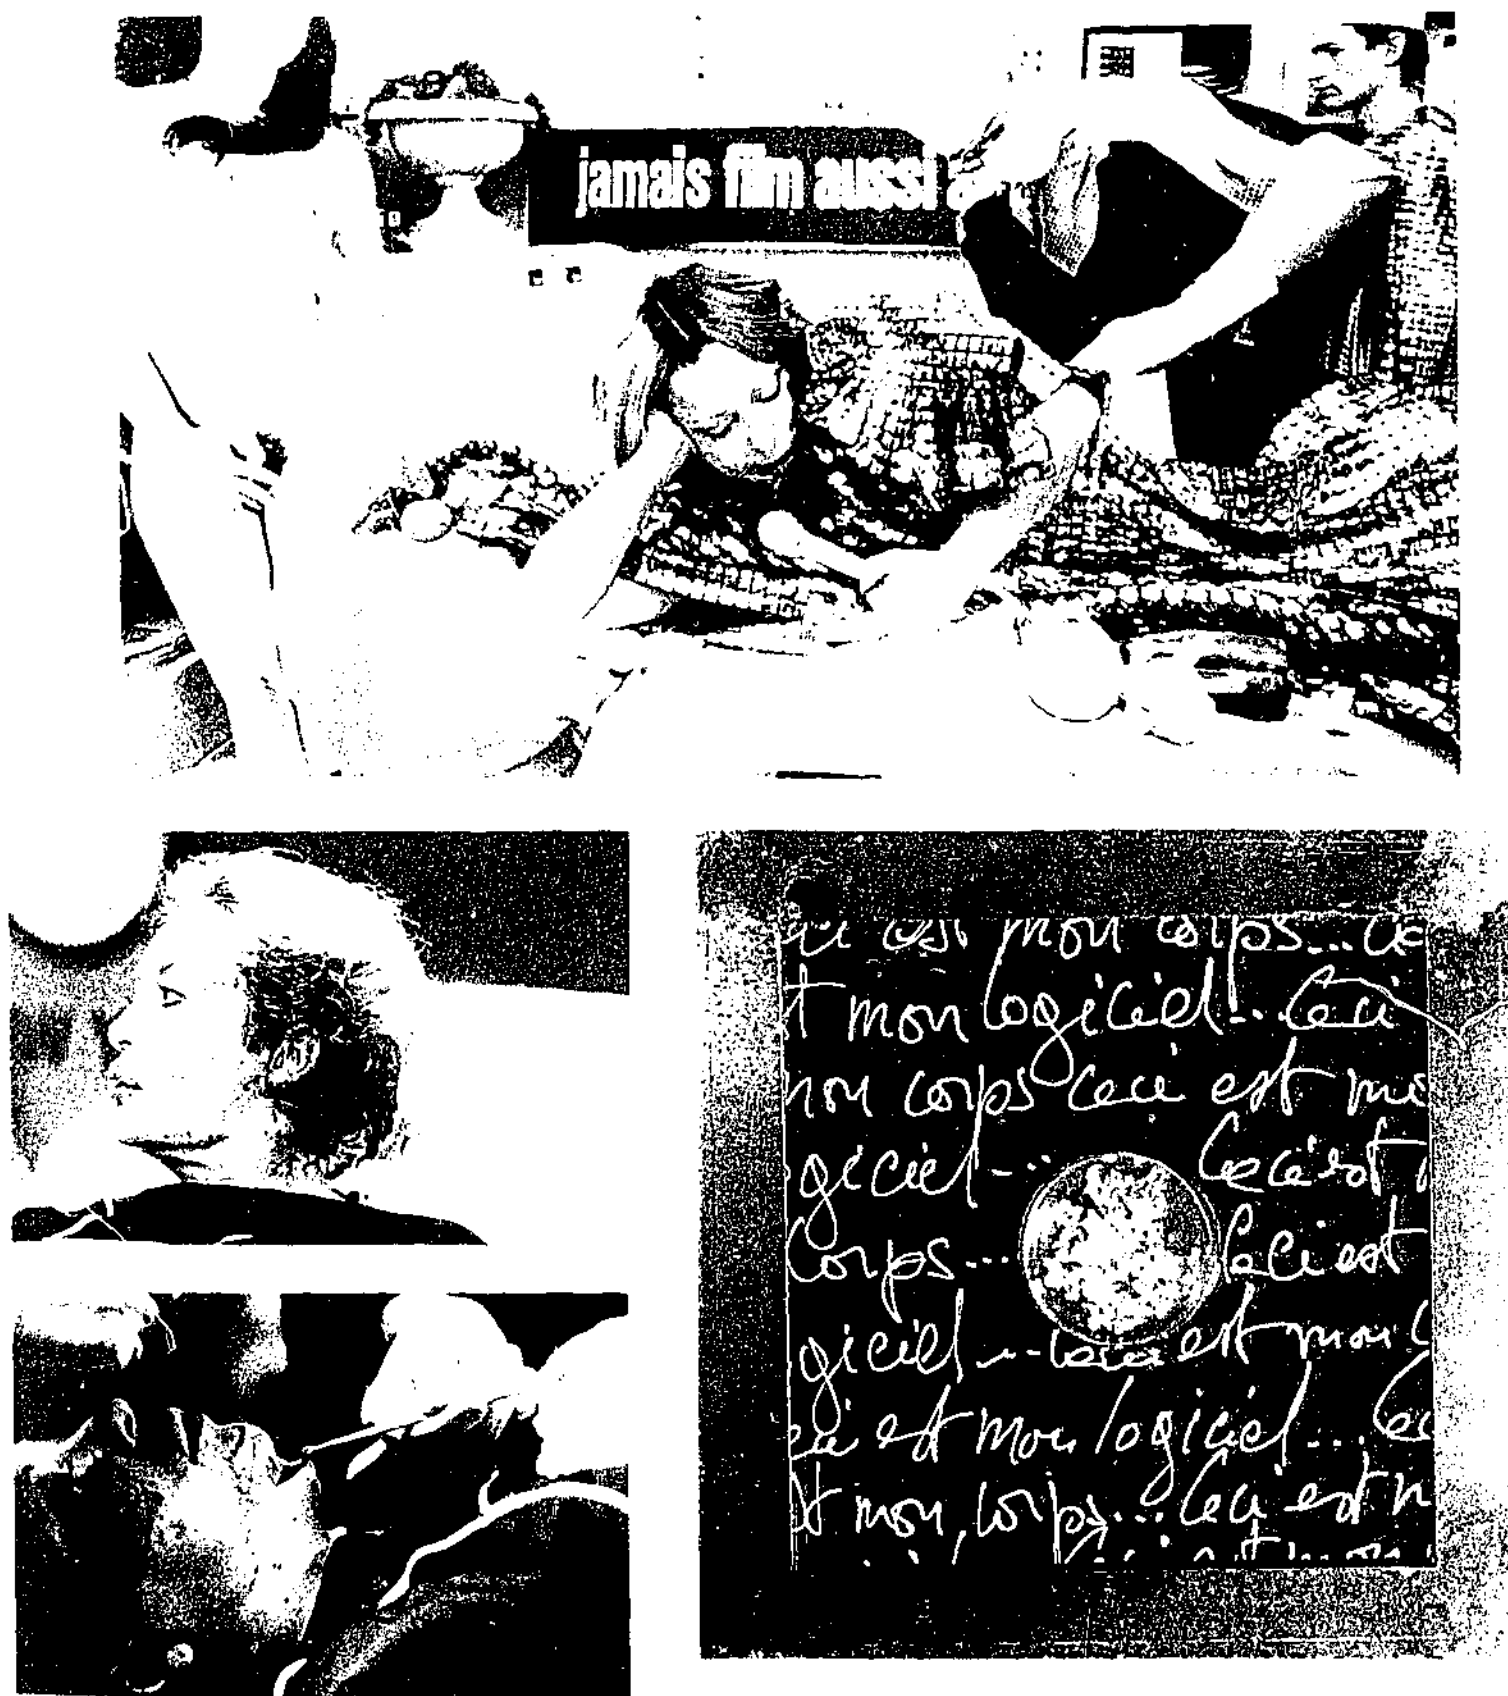 jamais film aussi
est mon corps... Ce
t mon logiciel... Ceci
mon corps ceci est mo
giciel... Ceci est
Corps... Ceci est
giciel... Ceci est mon l
est mon logiciel... Ce
st mon corps... Ceci est m